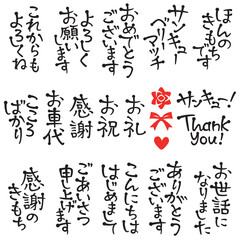 ほんの
きもちです
サンキュー
ベリー
マッチ
おめでとう
ございます
よろしく
お願い
します
これからも
よろしくね
サンキュー!
Thank
you!
お礼
お祝
感謝
お車代
こころ
ばかり
お世話に
なりました
ありがとう
ございます
こんにちは
はじめまして
ごあいさつ
申し上げます
感謝の
きもち